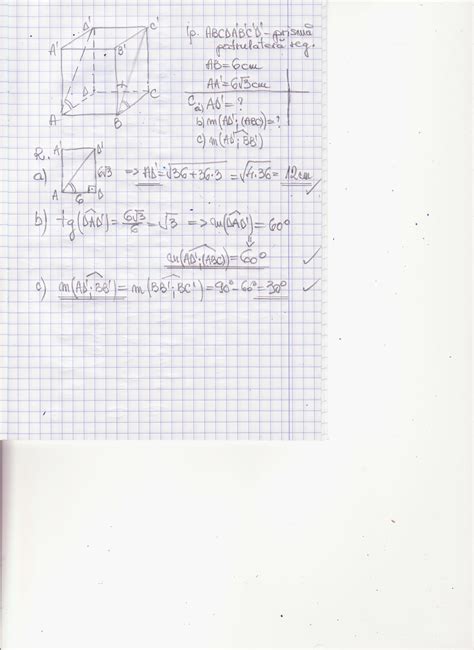 A' D' C' B'
A D B C
ip. ABCDA'B'C'D' - prismă
patrulateră reg.
AB = 6cm
AA' = 6√3cm
C. a) AD' = ?
b) m(AD'; (ABC)) = ?
c) m(AD'; BB')
R.
a) A' D' 6√3 A 6 D => AD' = √36+36·3 = √4·36 = 12cm ✓
b) tg(DAD') = 6√3/6 = √3 => m(DAD') = 60°
m(AD'; (ABC)) = 60° ✓
c) m(AD'; BB') = m(BB'; BC') = 90° - 60° = 30° ✓